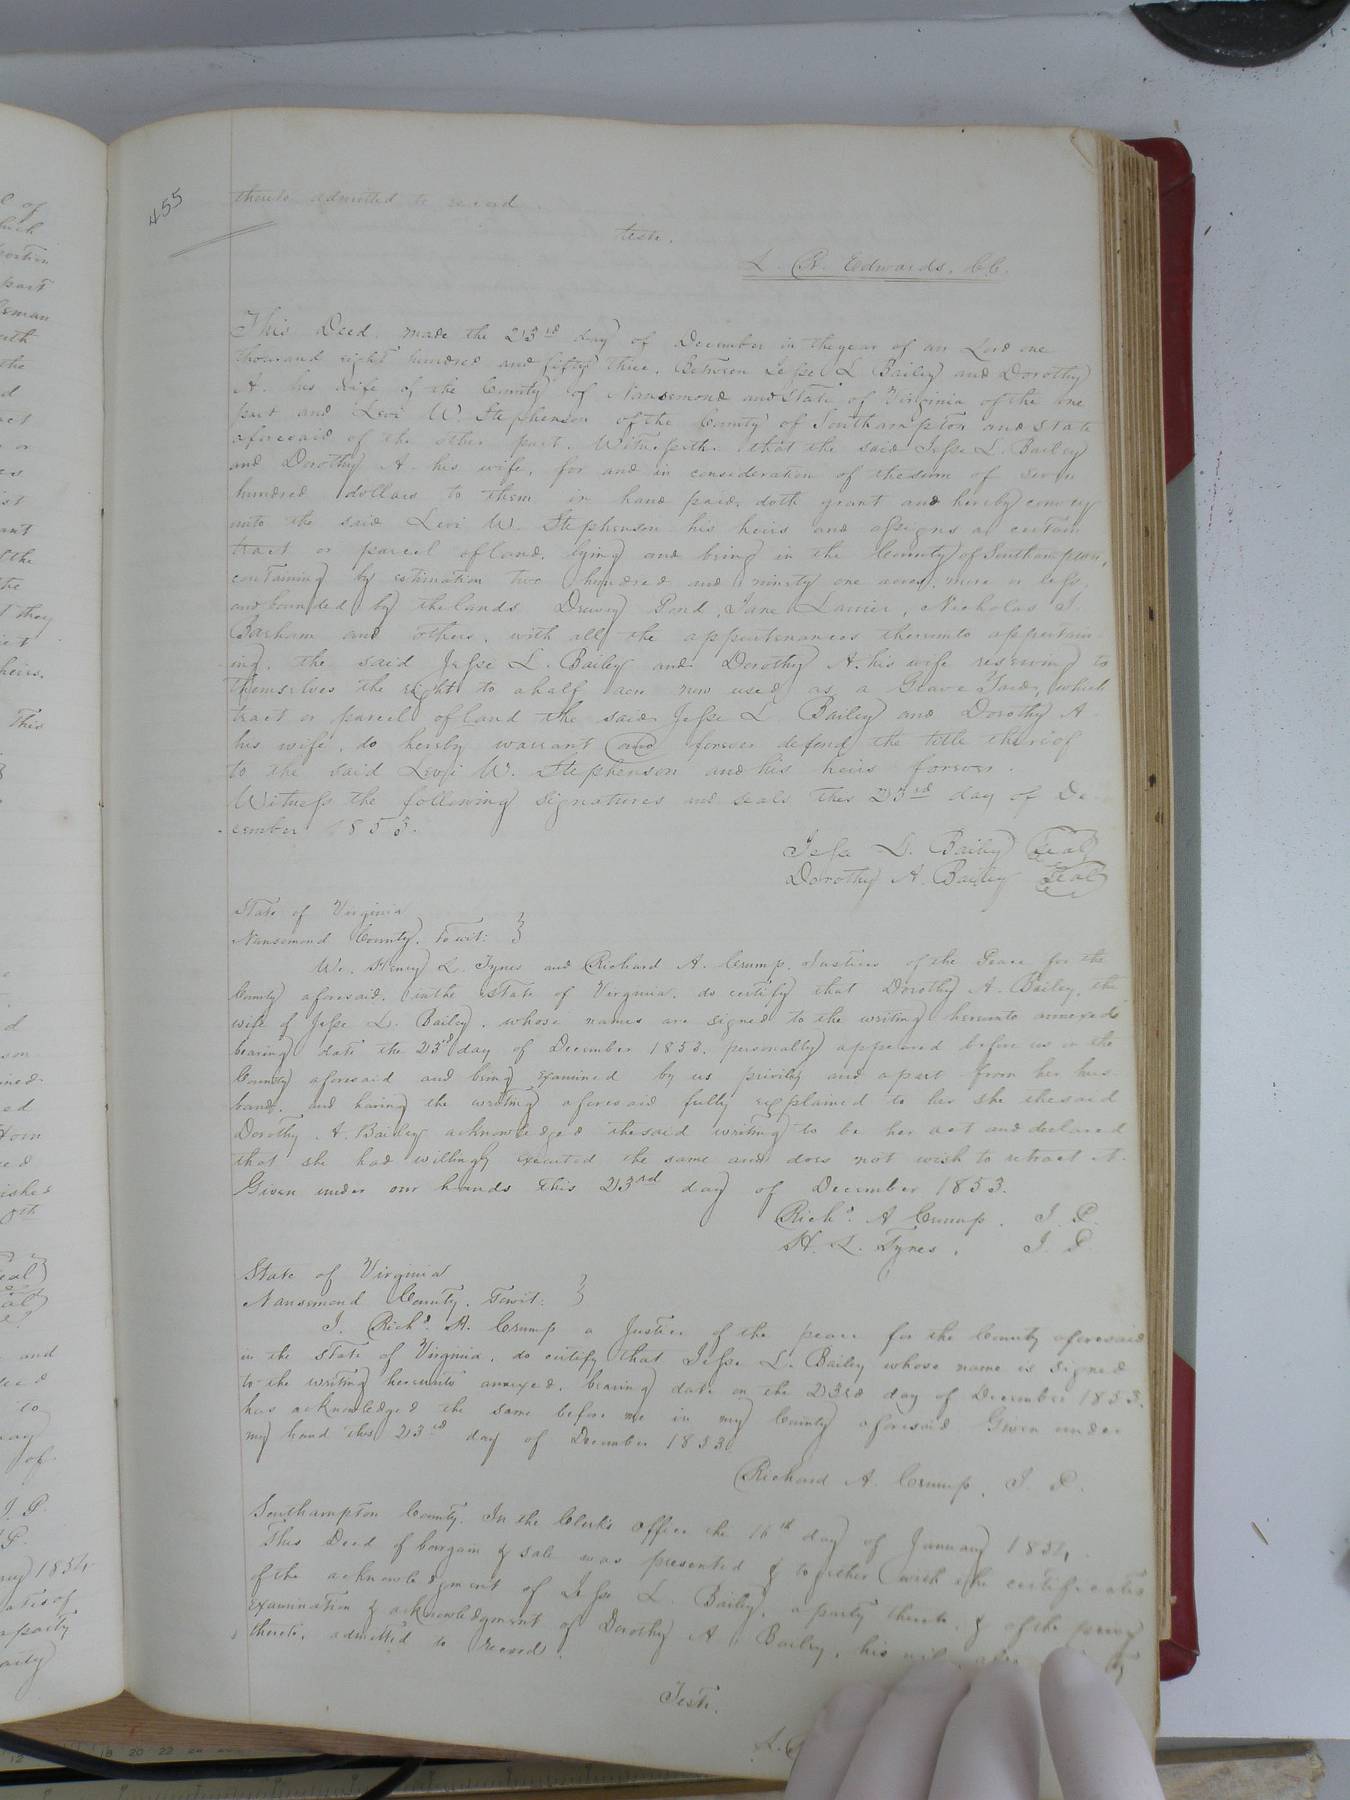 455
thereto admitted to record.
teste.
L. R. Edwards. C.C.
This Deed made the 23rd day of December in the year of our Lord one
thousand eight hundred and fifty three. Between Jesse L Bailey and Dorothy
A. his wife of the County of Nansemond and State of Virginia of the one
part and Levi W. Stephenson of the County of Southampton and State
aforesaid of the other part. Witnesseth that the said Jesse L. Bailey
and Dorothy A. his wife, for and in consideration of the sum of seven
hundred dollars to them in hand paid, doth grant and hereby convey
unto the said Levi W. Stephenson his heirs and assigns a certain
tract or parcel of land, lying and being in the County of Southampton,
containing by estimation two hundred and ninety one acres, more or less,
and bounded by the lands Drewry Pond, Jane Lanier, Nicholas J.
Barham and others, with all the appurtenances thereunto appertain-
ing. the said Jesse L. Bailey and Dorothy A. his wife reserving to
themselves the right to a half acre now used as a Grave Yard, which
tract or parcel of land the said Jesse L Bailey and Dorothy A
his wife, do hereby warrant and forever defend the title thereof
to the said Levi W. Stephenson and his heirs forever.
Witness the following signatures and seals this 23rd day of De-
cember 1853.
Jesse L. Bailey Seal
Dorothy A. Bailey Seal
State of Virginia
Nansemond County, Towit: }
We, Henry L. Tynes and Richard A. Crump, Justices of the Peace for the
County aforesaid, in the State of Virginia, do certify that Dorothy A. Bailey, the
wife of Jesse L. Bailey, whose names are signed to the writing hereunto annexed
bearing date the 23rd day of December 1853, personally appeared before us in the
County aforesaid and being examined by us privily and apart from her hus-
band, and having the writing aforesaid fully explained to her she the said
Dorothy A. Bailey acknowledged the said writing to be her act and declared
that she had willingly executed the same and does not wish to retract it.
Given under our hands this 23rd day of December 1853.
Richd. A Crump. J. P.
H. L. Tynes, J. P.
State of Virginia
Nansemond County. Towit: }
I, Richd. A. Crump a Justice of the peace for the County aforesaid
in the State of Virginia, do certify that Jesse L. Bailey whose name is signed
to the writing hereunto annexed, bearing date on the 23rd day of December 1853.
has acknowledged the same before me in my County aforesaid Given under
my hand this 23rd day of December 1853
Richard A. Crump, J. P.
Southampton County. In the Clerk's Office the 16th day of January 1854.
This Deed of bargain & sale was presented & together with the certificates
of the acknowledgment of Jesse L. Bailey, a party thereto, & of the privy
examination & acknowledgment of Dorothy A. Bailey, his wife, also
thereto, admitted to record.
Teste.